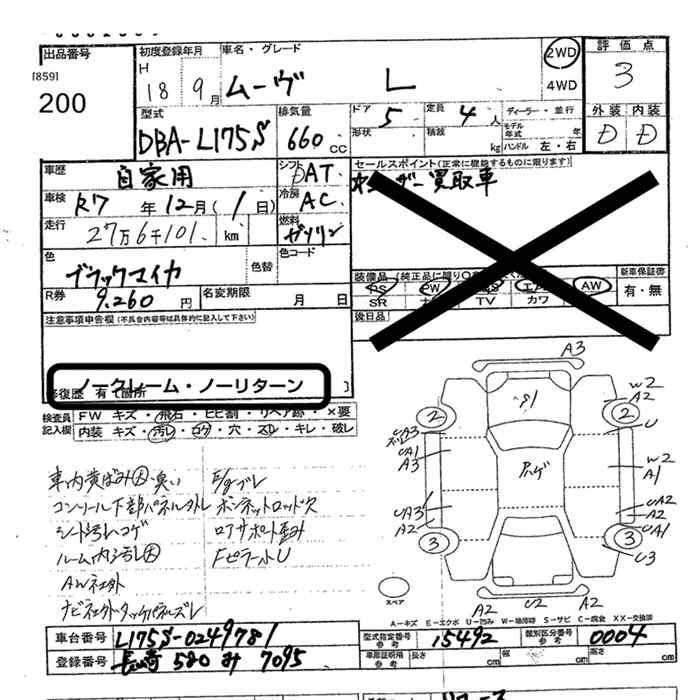 出品番号
[859]
200
初度登録年月
H
18 9月
車名・グレード
ムーヴ L
2WD
4WD
評価点
3
外装 内装
D D
型式
DBA-L175S
排気量
660 CC
ドア 5
形状
定員 4人
積載 kg
ディーラー・並行
モデル年式 年
ハンドル 左・右
車歴
自家用
シフト DAT
冷房 AC
燃料 ガソリン
車検 R7年12月(1日)
走行 27万6千101 km
色 ブラックマイカ
色替
色コード
R券 9,260円
名変期限 月 日
セールスポイント(正常に機能するものに限ります)
買取車
装備品
PS PW AW
SR TV カワ
新車保証書
有・無
後日品
注意事項申告欄(不具合内容等は具体的に記入して下さい)
ノークレーム・ノーリターン
修復歴 有 箇所
検査員記入欄
FW キズ・飛石・ヒビ割・リペア跡・×要
内装 キズ・汚レ・コゲ・穴・スレ・キレ・破レ
車内黄ばみ大・臭い
コンソール下部パネル外レ
シート汚レコゲ
ルーム内汚レ大
AW社外
ナビ社外・タッチパネルズレ
E/gブレ
ボンネットロッド欠
ロアサポート歪み
Fピラー小U
A3
W2
A2
U
W2
A1
UA2
A2
UA1
U3
A2
U2
A2
UA3
UA1
A3
UA3
A2
2
2
3
3
スペア
A－キズ E－エクボ U－凹み W－補修跡 S－サビ C－腐食 XX－交換済
車台番号 L175S-0249781
登録番号 長崎 580 み 7095
型式指定番号 参考 15492
類別区分番号 参考 0004
車庫証明用 参考 長さ cm 幅 cm 高さ cm